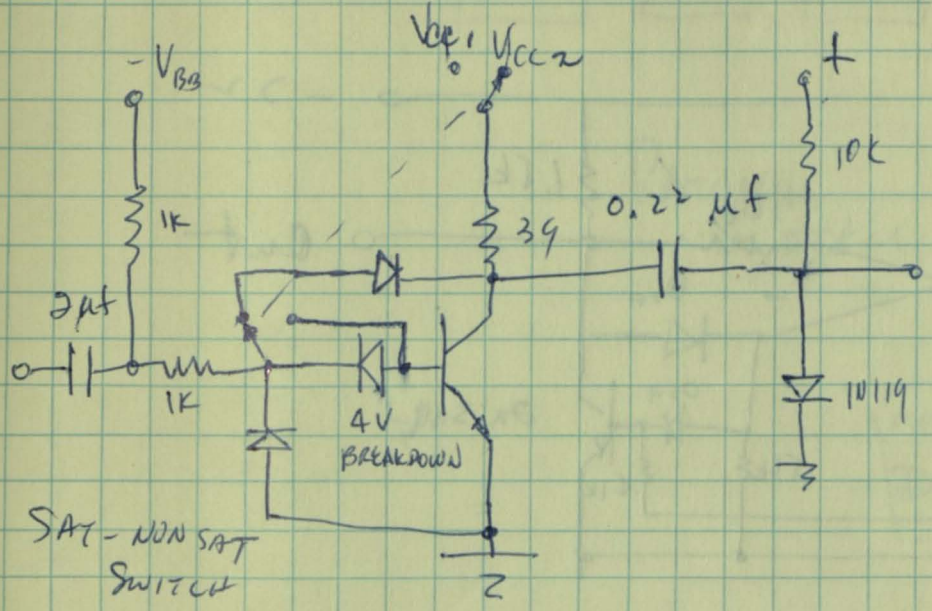 -V_BB
V_CC1 V_CC2
+
1K
39
0.22 μf
10K
2μf
1K
4V
BREAKDOWN
1N119
SAT-NON SAT
SWITCH